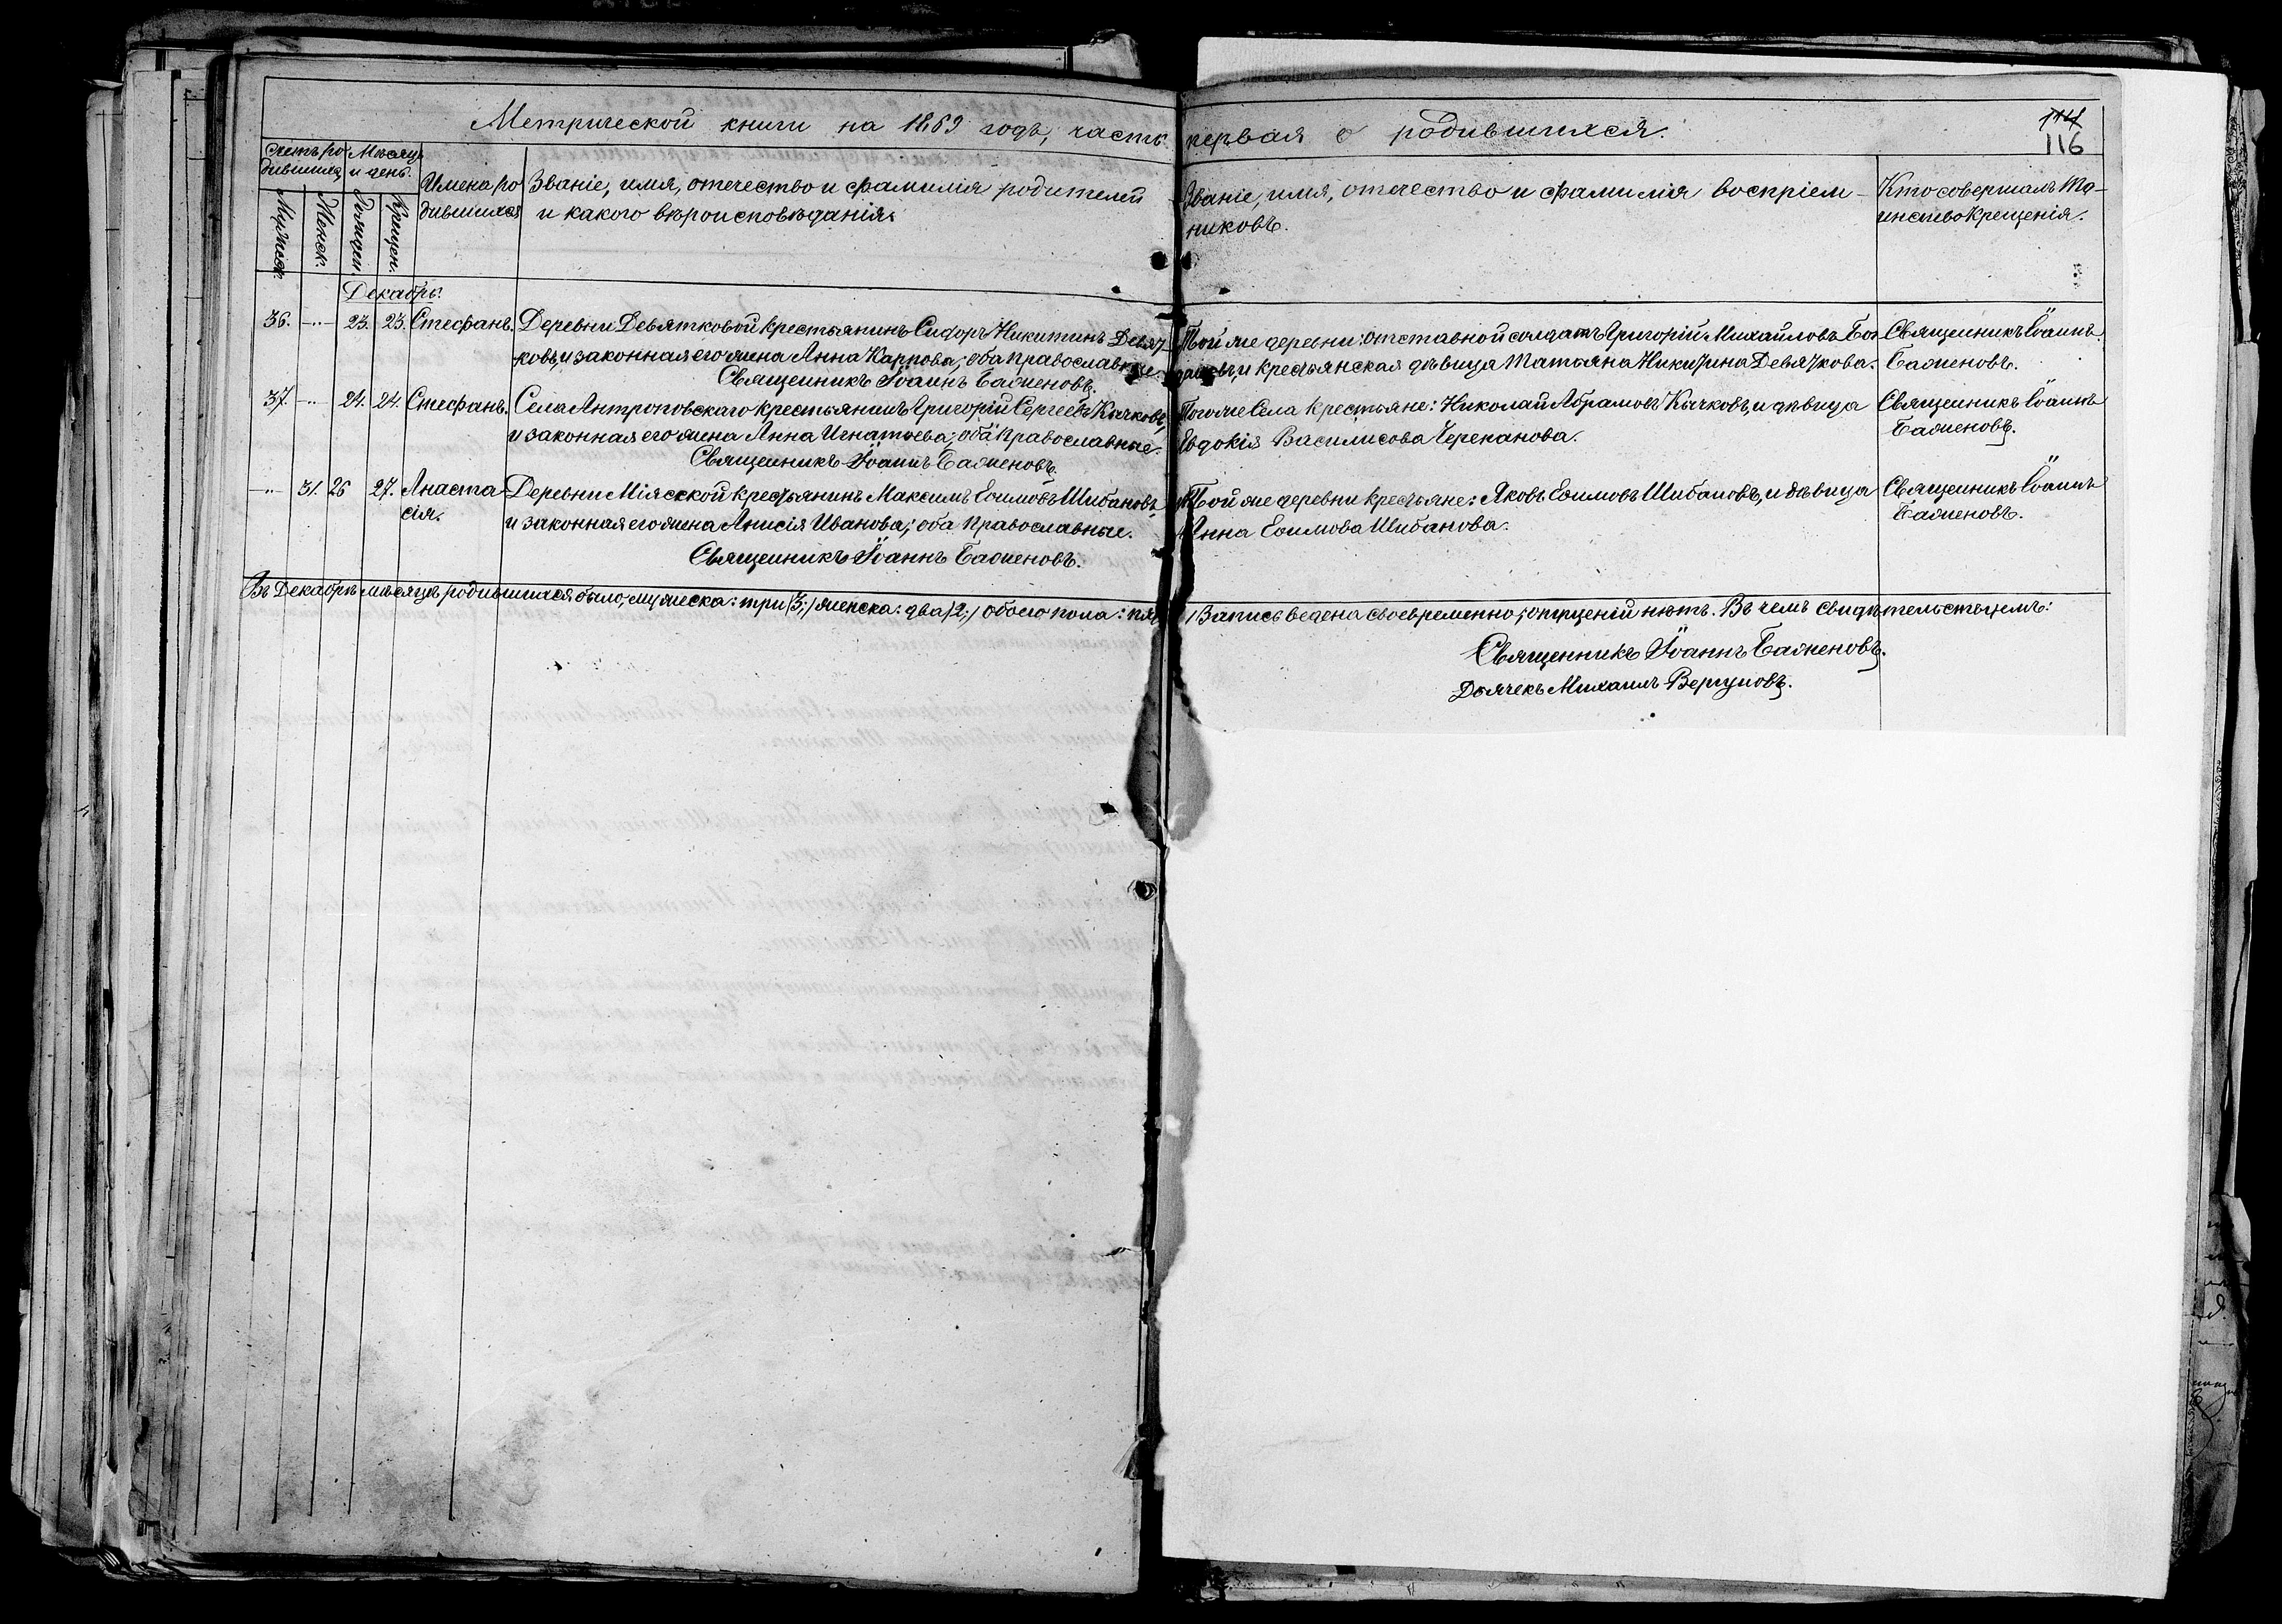 Метрической книги на 1869 годъ, часть первая о родившихся.
114
116
Счетъ ро
дившихся
Мѣсяцъ
и день.
Мужеск.
Женск.
Рожден.
Крещен.
Имена ро
дившихся
Званіе, имя, отечество и фамилія родителей
и какого вѣроисповѣданія.
Званіе, имя, отечество и фамилія воспріем-
никовъ.
Кто совершалъ та-
инство крещенія.
Декабрь.
36. -..- 23. 23. Стефанъ. Деревни Девятковой крестьянинъ Сидоръ Никитинъ Девят
ковъ, и законная его жена Анна Карпова; оба православные.
Священникъ Іоаннъ Баженовъ.
Той же деревни: отставной солдатъ Григорій Михайловъ
и крестьянская дѣвица Татьяна Никитина Девяткова.
Священникъ Іоаннъ
Баженовъ.
37. -..- 24. 24. Стефанъ. Села Антроповскаго крестьянинъ Григорій Сергеевъ Кычковъ,
и законная его жена Анна Игнатьева; оба православные.
Священникъ Іоаннъ Баженовъ.
Того же Села крестьяне: Николай Абрамовъ Кычковъ, и дѣвица
Евдокія Василисова Черепанова.
Священникъ Іоаннъ
Баженовъ.
-..- 31. 26 27. Анаста
сія.
Деревни Міясской крестьянинъ Максимъ Ефимовъ Шибановъ,
и законная его жена Анисія Иванова; оба православные.
Священникъ Іоаннъ Баженовъ.
Той же деревни крестьяне: Яковъ Ефимовъ Шибановъ, и дѣвица
Анна Ефимова Шибанова.
Священникъ Іоаннъ
Баженовъ.
Въ Декабрѣ мѣсяцѣ родившихся было, мужеска: три /3;/ женска: два /2;/ обоего пола: пят
Запись ведена своевременно; опущеній нѣтъ. Въ чемъ свидѣтельствуемъ:
Священникъ Іоаннъ Баженовъ.
Дьячекъ Михаилъ Вергуновъ.